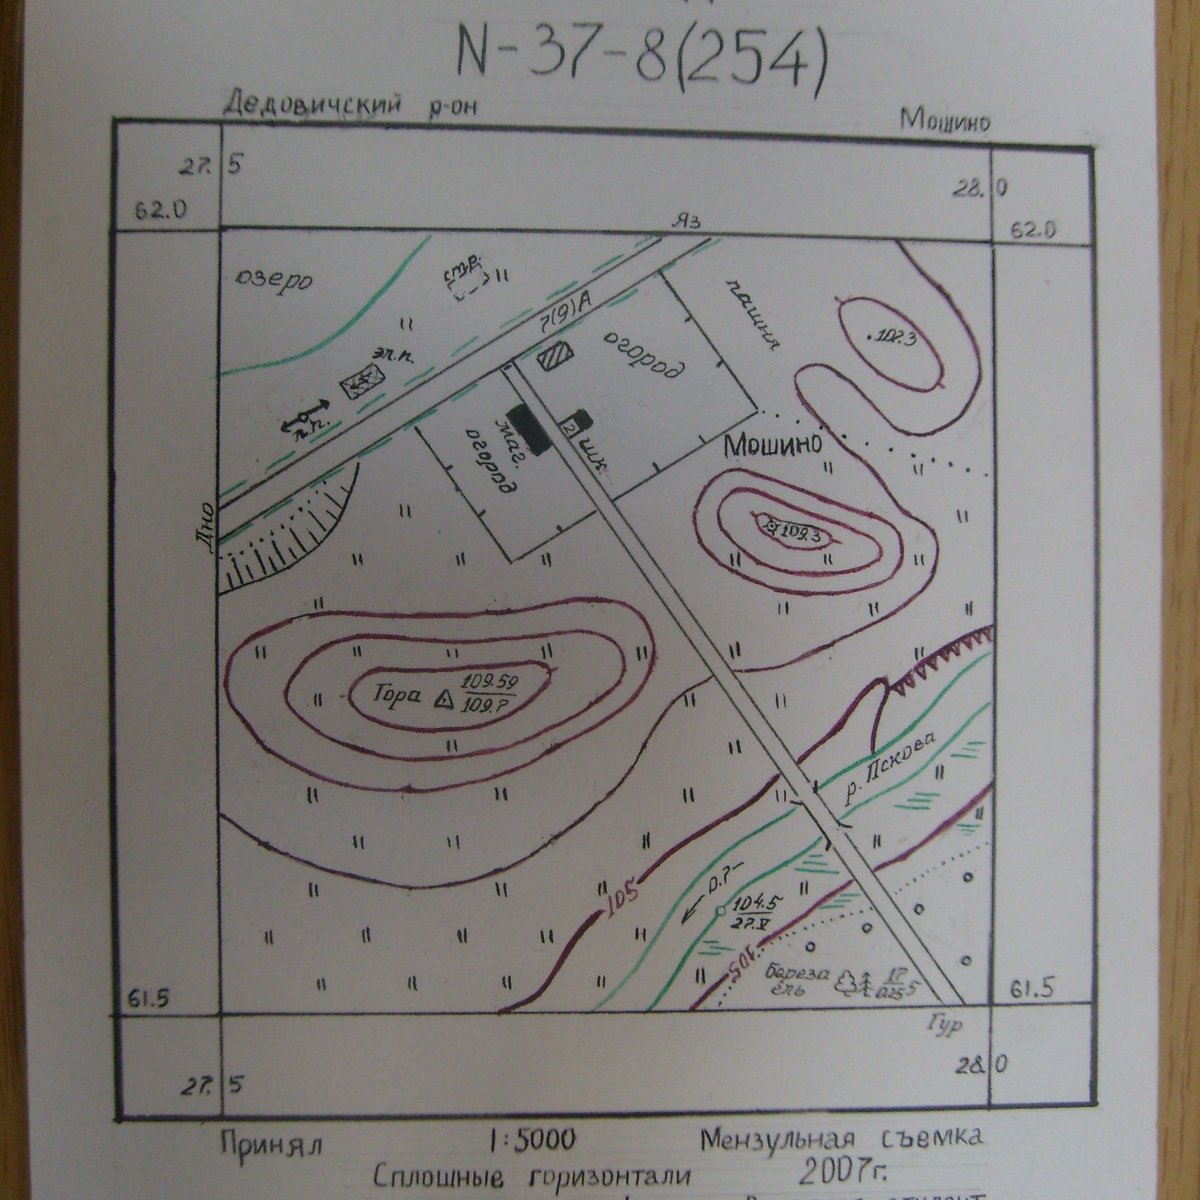 N-37-8(254)
Дедовичский р-он
Мошино
27.5
28.0
62.0
62.0
Яз
озеро
стр.
7(9)А
пашня
107.3
эл.п.
огород
г.п.
маг.
2
шк.
огород
Мошино
Дно
109.3
Гора
109.59
109.7
р. Пскова
0.7
105
104.5
27.V
105
Береза
ель
17
0.25
5
61.5
61.5
Гур
27.5
28.0
Принял
1:5000
Мензульная съемка
Сплошные горизонтали
2007г.